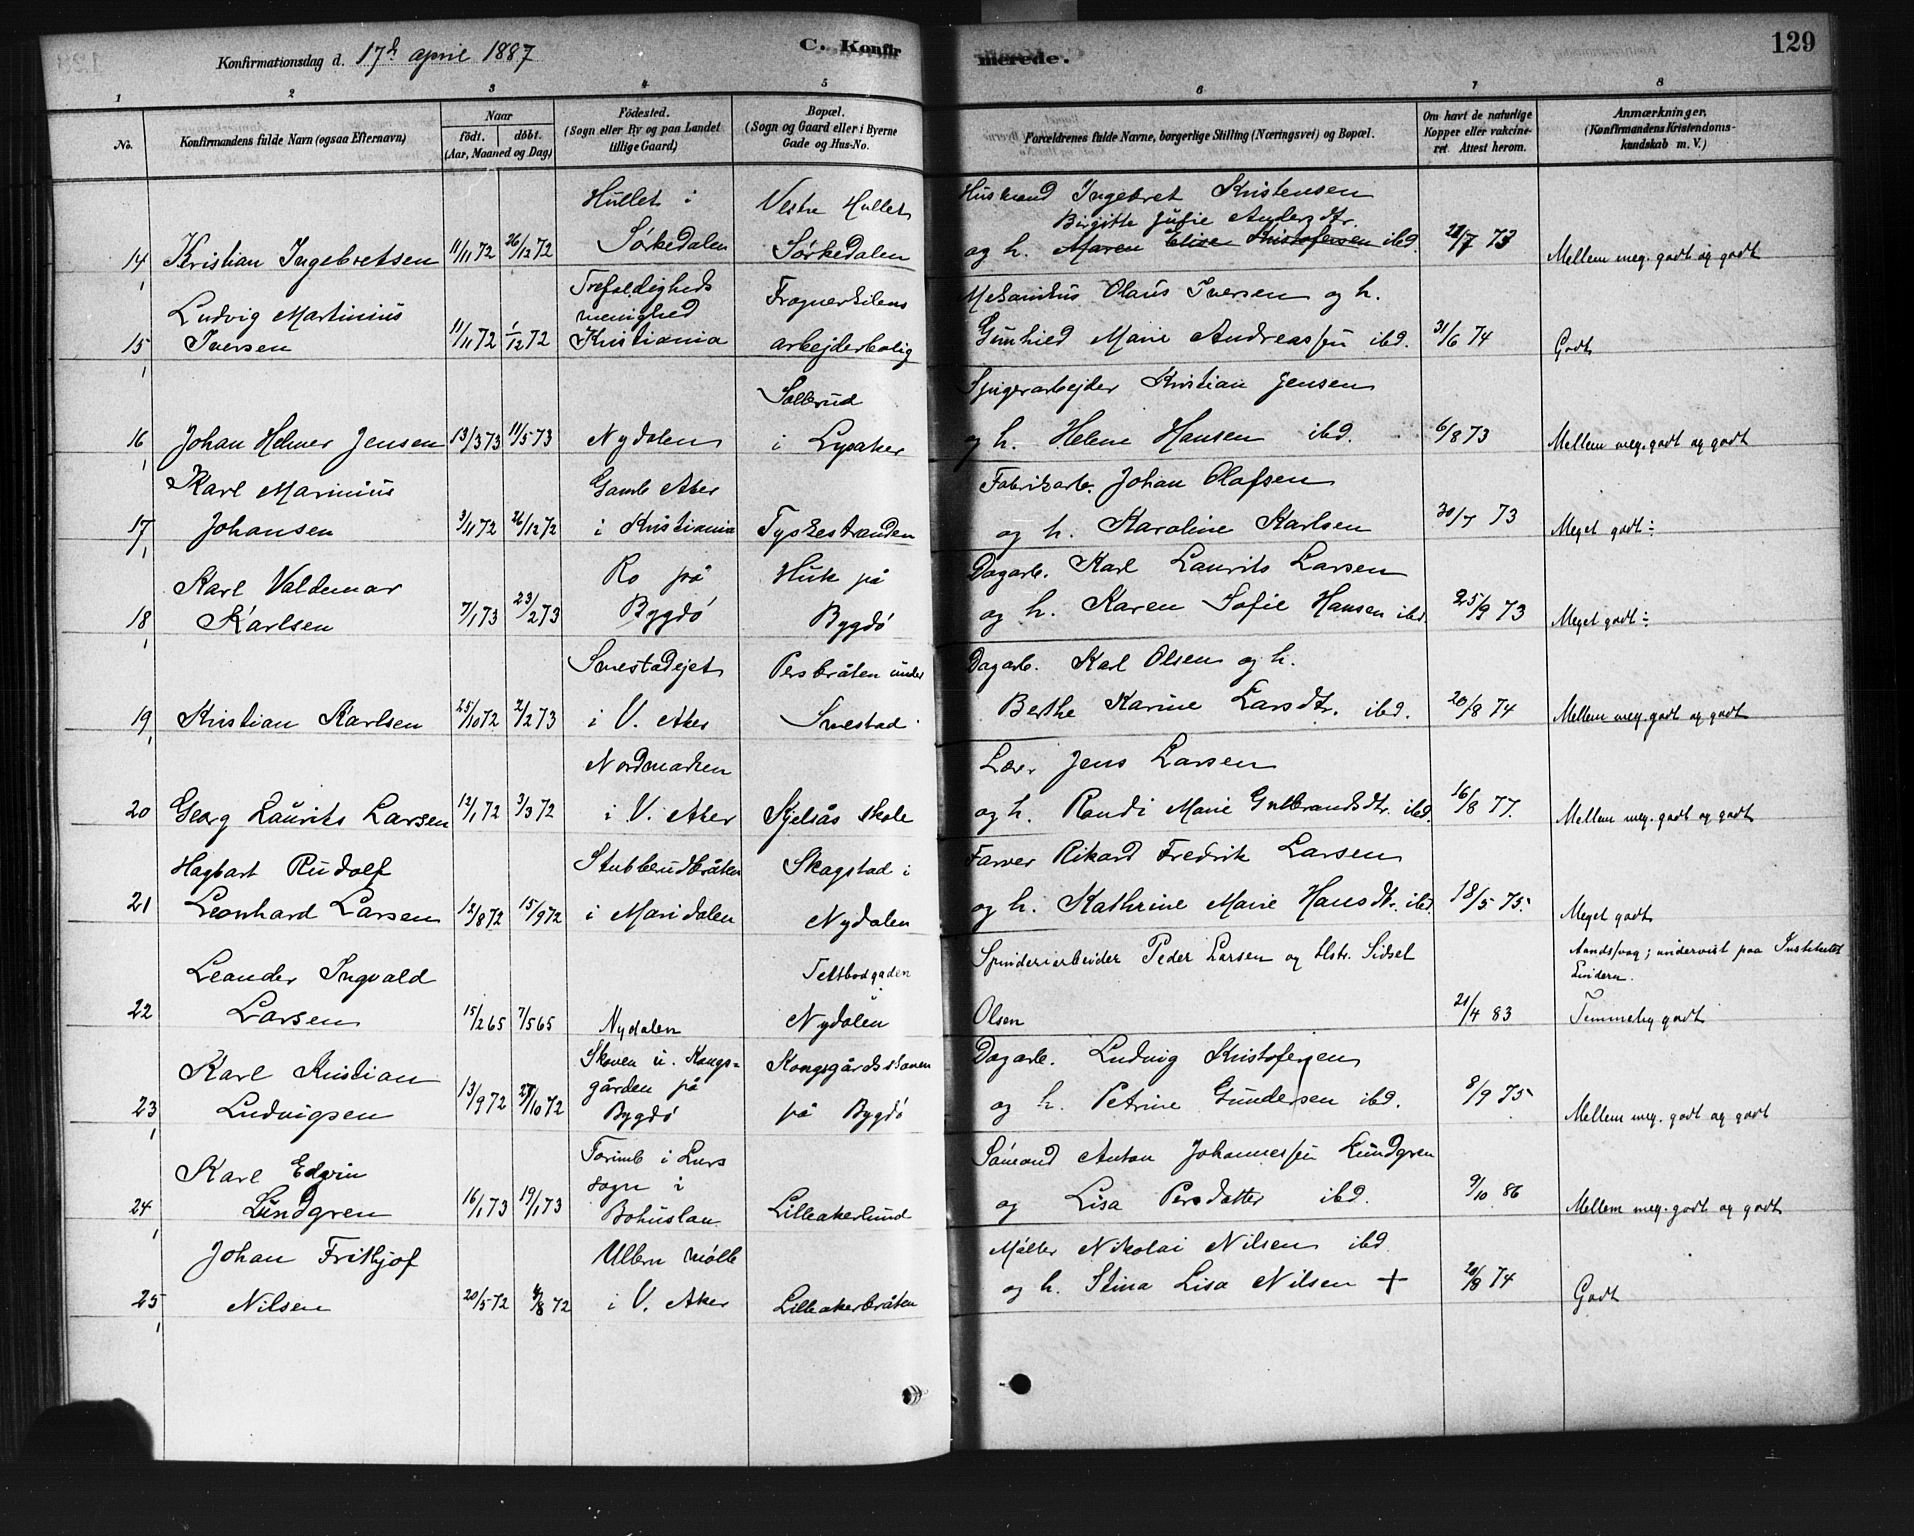 Konfirmationsdag d. 17de april 1887
C. Konfirmerede.
129
1 2 3 4 5 6 7 8
No. Konfirmandens fulde Navn (ogsaa Efternavn) Naar født. døbt. (Aar, Maaned og Dag) Födested. (Sogn eller By og paa Landet tillige Gaard) Bopæl. (Sogn og Gaard eller i Byerne Gade og Hus-No. Forældrenes fulde Navne, borgerlige Stilling (Næringsvei) og Bopæl. Om havt de naturlige Kopper eller vakcineret. Attest herom. Anmærkninger, (Konfirmandens Kristendomskundskab m. V.)
Hullet i Vestre Hullet Husmand Ingebret Kristensen
Birgitte Julie Andersdtr.
14 Kristian Ingebretsen 11/11 72 26/12 72 Sørkedalen Sørkedalen og h. Maren Elise Kristofersen ibd. 21/7 73 Mellem meg. godt og godt
Ludvig Martinius Trefoldigheds menighed Frognerkilens Mekanikus Olaus Iversen og h.
15 Iversen 11/11 72 1/12 72 Kristiania arbejderbolig Gunhild Marie Andreassen ibd. 31/6 74 Godt
Sollerud Spigerarbejder Kristian Jensen
16 Johan Helmer Jensen 13/3 73 11/5 73 Nydalen i Lysaker og h. Helene Hansen ibd. 6/8 73 Mellem meg. godt og godt
Karl Marinius Gamle Aker Fabrikarb. Johan Olafsen
17 Johansen 3/11 72 26/12 72 i Kristiania Tyskestranden og h. Karoline Karlsen 30/7 73 Meget godt ÷
Karl Valdemar Ro på Huk på Dagarb. Karl Laurits Larsen
18 Karlsen 7/1 73 23/2 73 Bygdø Bygdø og h. Karen Sofie Hansen ibd. 25/9 73 Meget godt ÷
Smestadejet Persbråten under Dagarb. Karl Olsen og h.
19 Kristian Karlsen 25/10 72 2/2 73 i V. Aker Smestad Berthe Karine Larsdtr. ibd. 20/8 74 Mellem meg. godt og godt
Nordmarken Lær. Jens Larsen
20 Georg Laurits Larsen 12/1 72 3/3 72 i V. Aker Kjelsås skole og h. Randi Marie Gulbrandsdtr. ibd. 16/8 77. Mellem meg. godt og godt
Hagbart Rudolf Stubberudbråten Skagstad i Farver Rikard Fredrik Larsen
21 Leonhard Larsen 12/8 72 15/9 72 i Maridalen Nydalen og h. Kathrine Marie Hansdtr. ibd. 18/5 75. Meget godt
Leander Ingvald Teltbodgaden Spinderiarbeider Peder Larsen og Hstr. Sidsel Aandssvag; undervist paa Institutet Lindern.
22 Larsen 15/2 65 7/5 65 Nydalen Nydalen Olsen 21/4 83 Temmelig godt
Karl Kristian Skoven u. Kongsgården på Kongsgårdsskoven Dagarb. Ludvig Kristofersen
23 Ludvigsen 13/9 72 27/10 72 Bygdø på Bygdø og h. Petrine Gundersen ibd. 8/9 75 Mellem meg. godt og godt
Karl Edvin Torimb i Lurs sogn i Sømand Anton Johannessen Lundgren
24 Lundgren 16/1 73 19/1 73 Bohuslan Lilleakerlund og Lisa Persdatter ibd. 9/10 86 Mellem meg. godt og godt
Johan Frithjof Ullern mølle Møller Nikolai Nilsen ibd.
25 Nilsen 20/5 72 4/8 72 i V. Aker Lilleakerbråten og h. Stina Lisa Nilsen + 20/8 74 Godt